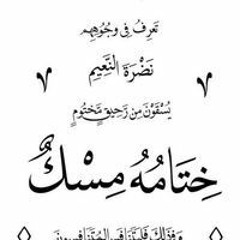 تَعْرِفُ فِي وُجُوهِهِمْ
نَضْرَةَ النَّعِيمِ
يُسْقَوْنَ مِن رَّحِيقٍ مَّخْتُومٍ
خِتَامُهُ مِسْكٌ
وَفِي ذَٰلِكَ فَلْيَتَنَافَسِ الْمُتَنَافِسُونَ